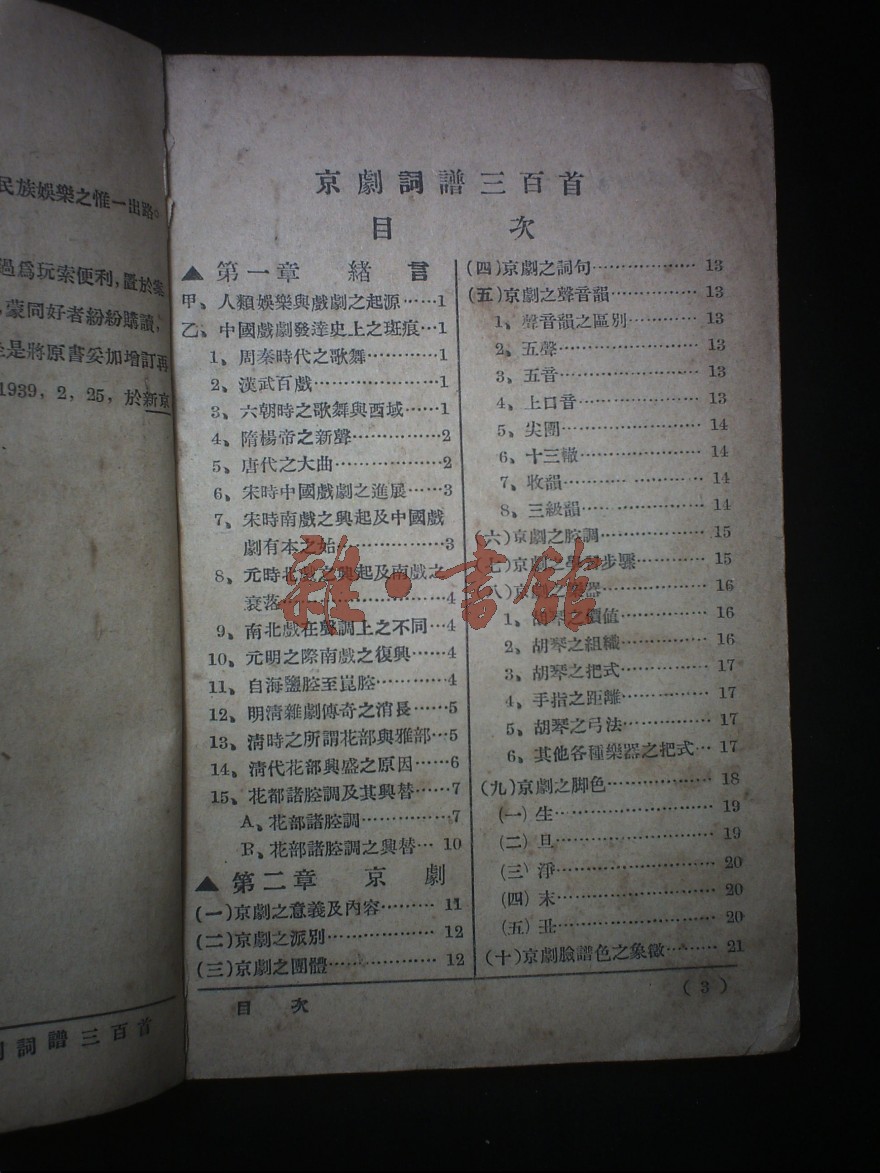 民族娛樂之惟一出路。
過爲玩索便利,置於案
蒙同好者紛紛購讀,
是將原書妥加增訂再
1939, 2, 25, 於新京
詞譜三百首
京劇詞譜三百首
目 次
▲ 第一章 緒言
甲、人類娛樂與戲劇之起源……1
乙、中國戲劇發達史上之斑痕…1
1、周秦時代之歌舞…………1
2、漢武百戲…………………1
3、六朝時之歌舞與西域……1
4、隋楊帝之新聲……………2
5、唐代之大曲………………2
6、宋時中國戲劇之進展……3
7、宋時南戲之興起及中國戲
劇有本之始………………3
8、元時北戲之興起及南戲之
衰落………………………4
9、南北戲在聲調上之不同…4
10、元明之際南戲之復興……4
11、自海鹽腔至崑腔…………4
12、明清雜劇傳奇之消長……5
13、清時之所謂花部與雅部…5
14、清代花部興盛之原因……6
15、花都諸腔調及其興替……7
A、花部諸腔調……………7
B、花部諸腔調之興替… 10
▲ 第二章 京劇
(一)京劇之意義及內容……… 11
(二)京劇之派別……………… 12
(三)京劇之團體……………… 12
(四)京劇之詞句……………… 13
(五)京劇之聲音韻…………… 13
1、聲音韻之區別………… 13
2、五聲…………………… 13
3、五音…………………… 13
4、上口音………………… 13
5、尖團…………………… 14
6、十三轍………………… 14
7、收韻…………………… 14
8、三級韻………………… 14
(六)京劇之腔調……………… 15
(七)京劇之學習步驟………… 15
(八)京劇之樂器……………… 16
1、胡琴之價値…………… 16
2、胡琴之組織…………… 16
3、胡琴之把式…………… 17
4、手指之距離…………… 17
5、胡琴之弓法…………… 17
6、其他各種樂器之把式… 17
(九)京劇之脚色……………… 18
(一)生……………………… 19
(二)旦……………………… 19
(三)淨……………………… 20
(四)末……………………… 20
(五)丑……………………… 20
(十)京劇臉譜色之象徵……… 21
目 次
(3)
雜·書館